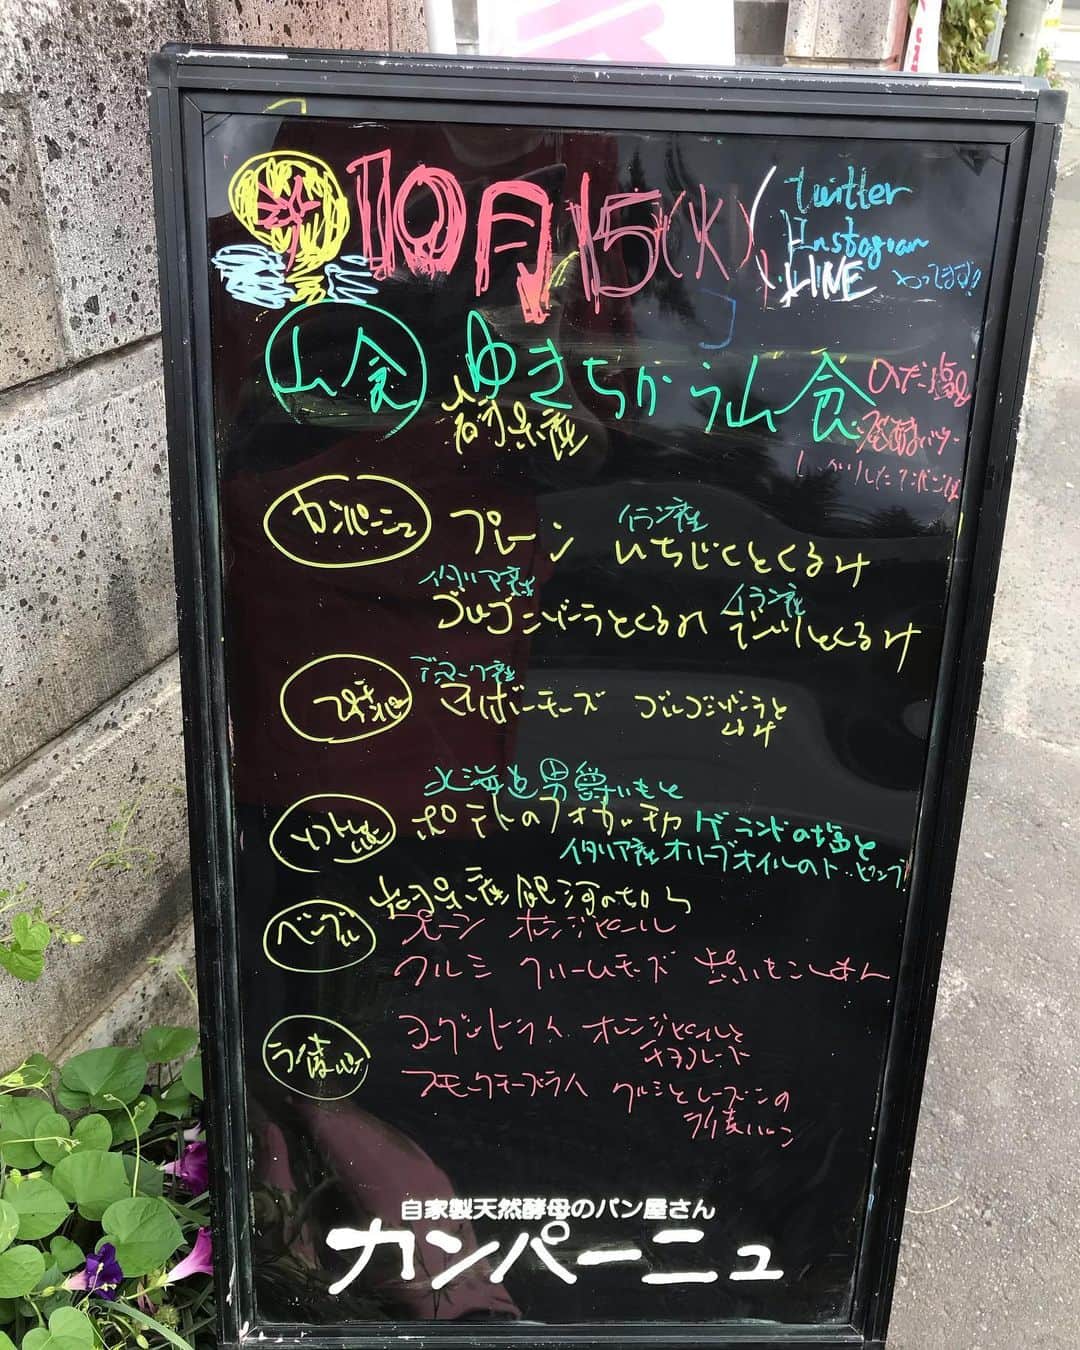 10月15(火)
twitter
Instagram
LINE やってます!!
山食 ゆきちから山食
岩手県産
カンパーニュ プレーン イラン産 いちじくとくるみ
イタリア産 ゴルゴンゾーラとくるみ イラン産 デーツとくるみ
デンマーク産
マリボーチーズ ゴルゴンゾーラと
くるみ
北海道男爵いもと
ポテトのフォカッチャ ゲランドの塩と
イタリア産オリーブオイルのトッピング!
岩手県産銀河のちから
ベーグル プレーン オレンジピール
クルミ クリームチーズ 紫いもとこしあん
ライ麦パン ヨーグルトライ オレンジピールと
チョコレート
スモークチーズライ クルミとレーズンの
ライ麦パン
自家製天然酵母のパン屋さん
カンパーニュ